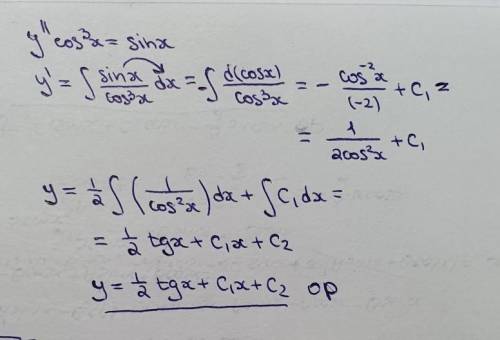 y'' cos³x = sinx
y' = ∫ sinx/cos³x dx = -∫ d(cosx)/cos³x = - cos⁻²x/(-2) + C₁ =
= 1/2cos²x + C₁
y = 1/2 ∫ (1/cos²x) dx + ∫ C₁ dx =
= 1/2 tgx + C₁x + C₂
y = 1/2 tgx + C₁x + C₂ op